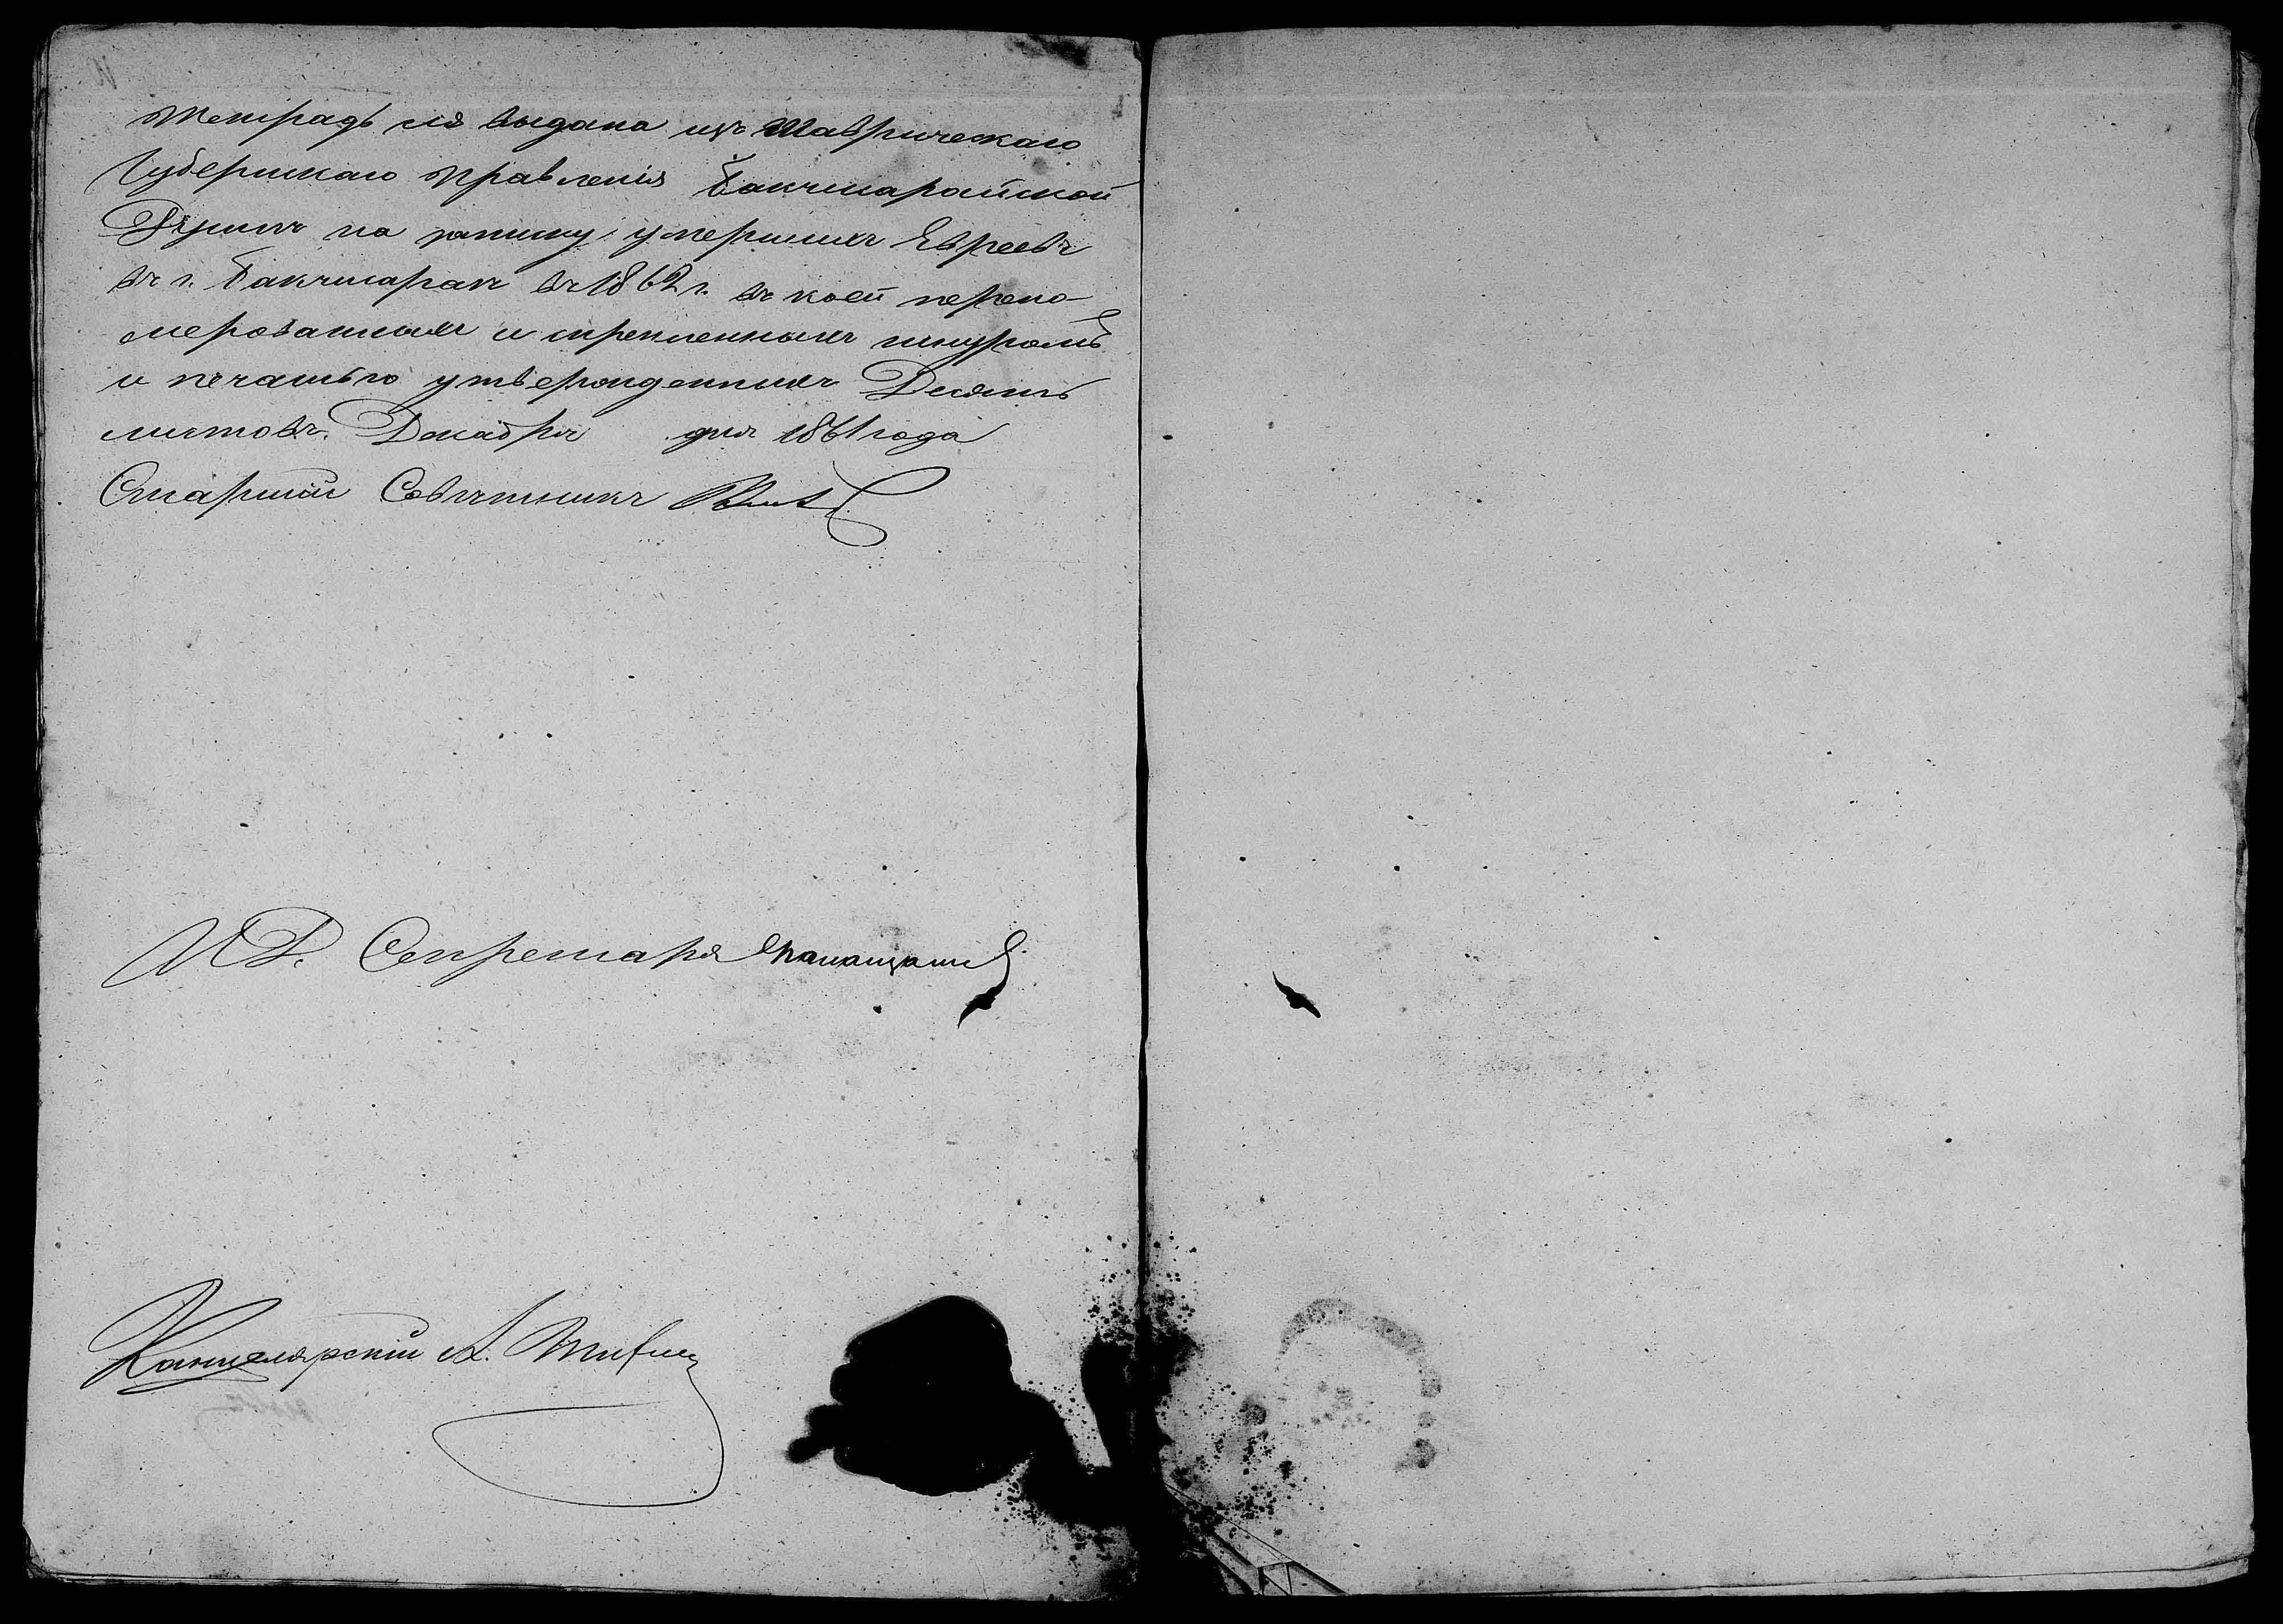 Тетрадь сія выдана изъ Таврическаго
Губернскаго Правленія Бакчисарайской
Думѣ на записку умершихъ Евреевъ
въ г. Бакчисараѣ въ 1862 г. въ коей перено-
мерованныхъ и скрепленныхъ шнуромъ
и печатью утвержденныхъ Десять
листовъ. Декабря дня 1861 года
Старшій Совѣтникъ
И Д. Секретаря
Канцелярскій А.